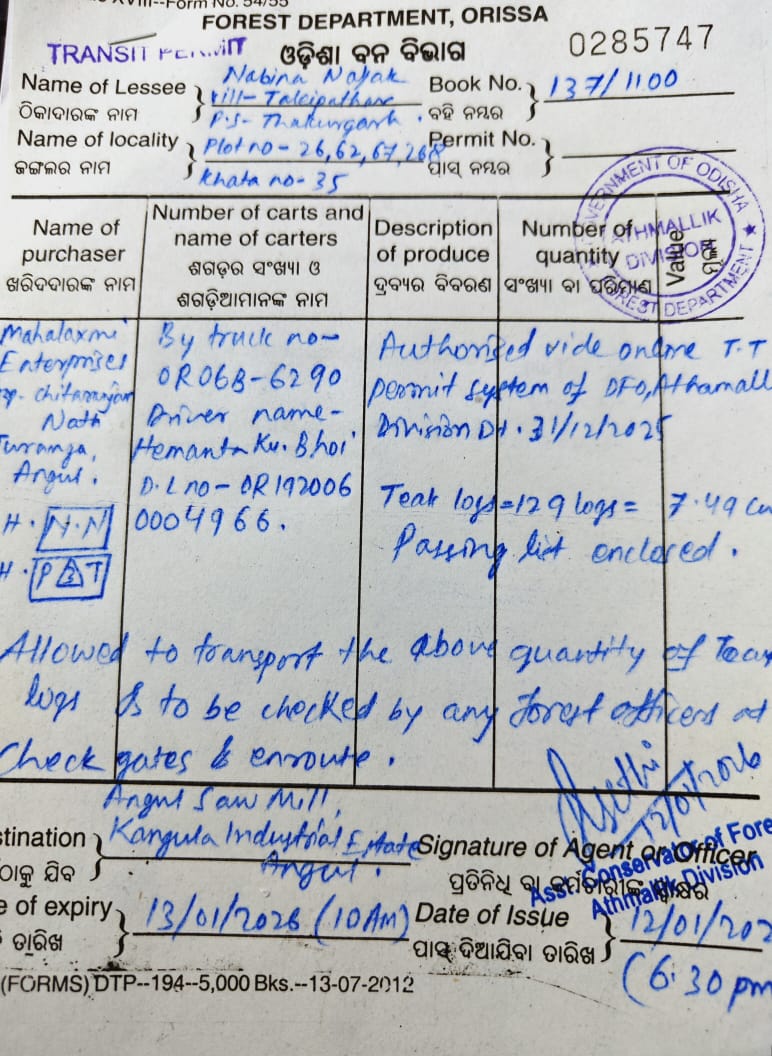 XVIII--Form No. 54/55
FOREST DEPARTMENT, ORISSA
TRANSIT PERMIT ଓଡ଼ିଶା ବନ ବିଭାଗ 0285747
Name of Lessee } Nabina Nayak
ଠିକାଦାରଙ୍କ ନାମ vill- Talcipathar
P.S- Thakurgarh.
Book No. } 137/1100
ବହି ନମ୍ବର
Name of locality } Plot no - 26,62,67,268
ଜଙ୍ଗଲର ନାମ Khata no- 35
Permit No. }
ପାସ୍ ନମ୍ବର
GOVERNMENT OF ODISHA
ATHMALLIK
DIVISION
FOREST DEPARTMENT
Name of purchaser
ଖରିଦଦାରଙ୍କ ନାମ
Number of carts and
name of carters
ଶଗଡ଼ର ସଂଖ୍ୟା ଓ
ଶଗଡ଼ିଆମାନଙ୍କ ନାମ
Description
of produce
ଦ୍ରବ୍ୟର ବିବରଣ
Number of
quantity
ସଂଖ୍ୟା ବା ପରିମାଣ
Value
ମୂଲ୍ୟ
Mahalaxmi
Enterprises
Chitaranjan
Nath
Turanga,
Angul.
H. N.N
H. P T
By truck no-
OR06B-6290
Driver name-
Hemanta Ku. Bhoi
D.L no - OR192006
0004966.
Authorised vide online T.T
permit system of DFO, Athamall
Division Dt. 31/12/2025
Teak logs = 129 logs = 7.49 cu
Passing list enclosed.
Allowed to transport the above quantity of Teak
logs & to be checked by any forest officers at
Check gates & enroute.
stination } Angul Saw Mill,
Kangula Industrial Estate
ଠାକୁ ଯିବ Angul.
12/01/2026
Signature of Agent or Officer
ପ୍ରତିନିଧି ବା କର୍ମଚାରୀଙ୍କ ସ୍ୱାକ୍ଷର
Asst. Conservator of Fore
Athmallik Division
e of expiry } 13/01/2026 (10 AM)
ତାରିଖ
Date of Issue } 12/01/202
ପାସ୍ ଦିଆଯିବା ତାରିଖ (6.30 pm
(FORMS) DTP--194--5,000 Bks.--13-07-2012